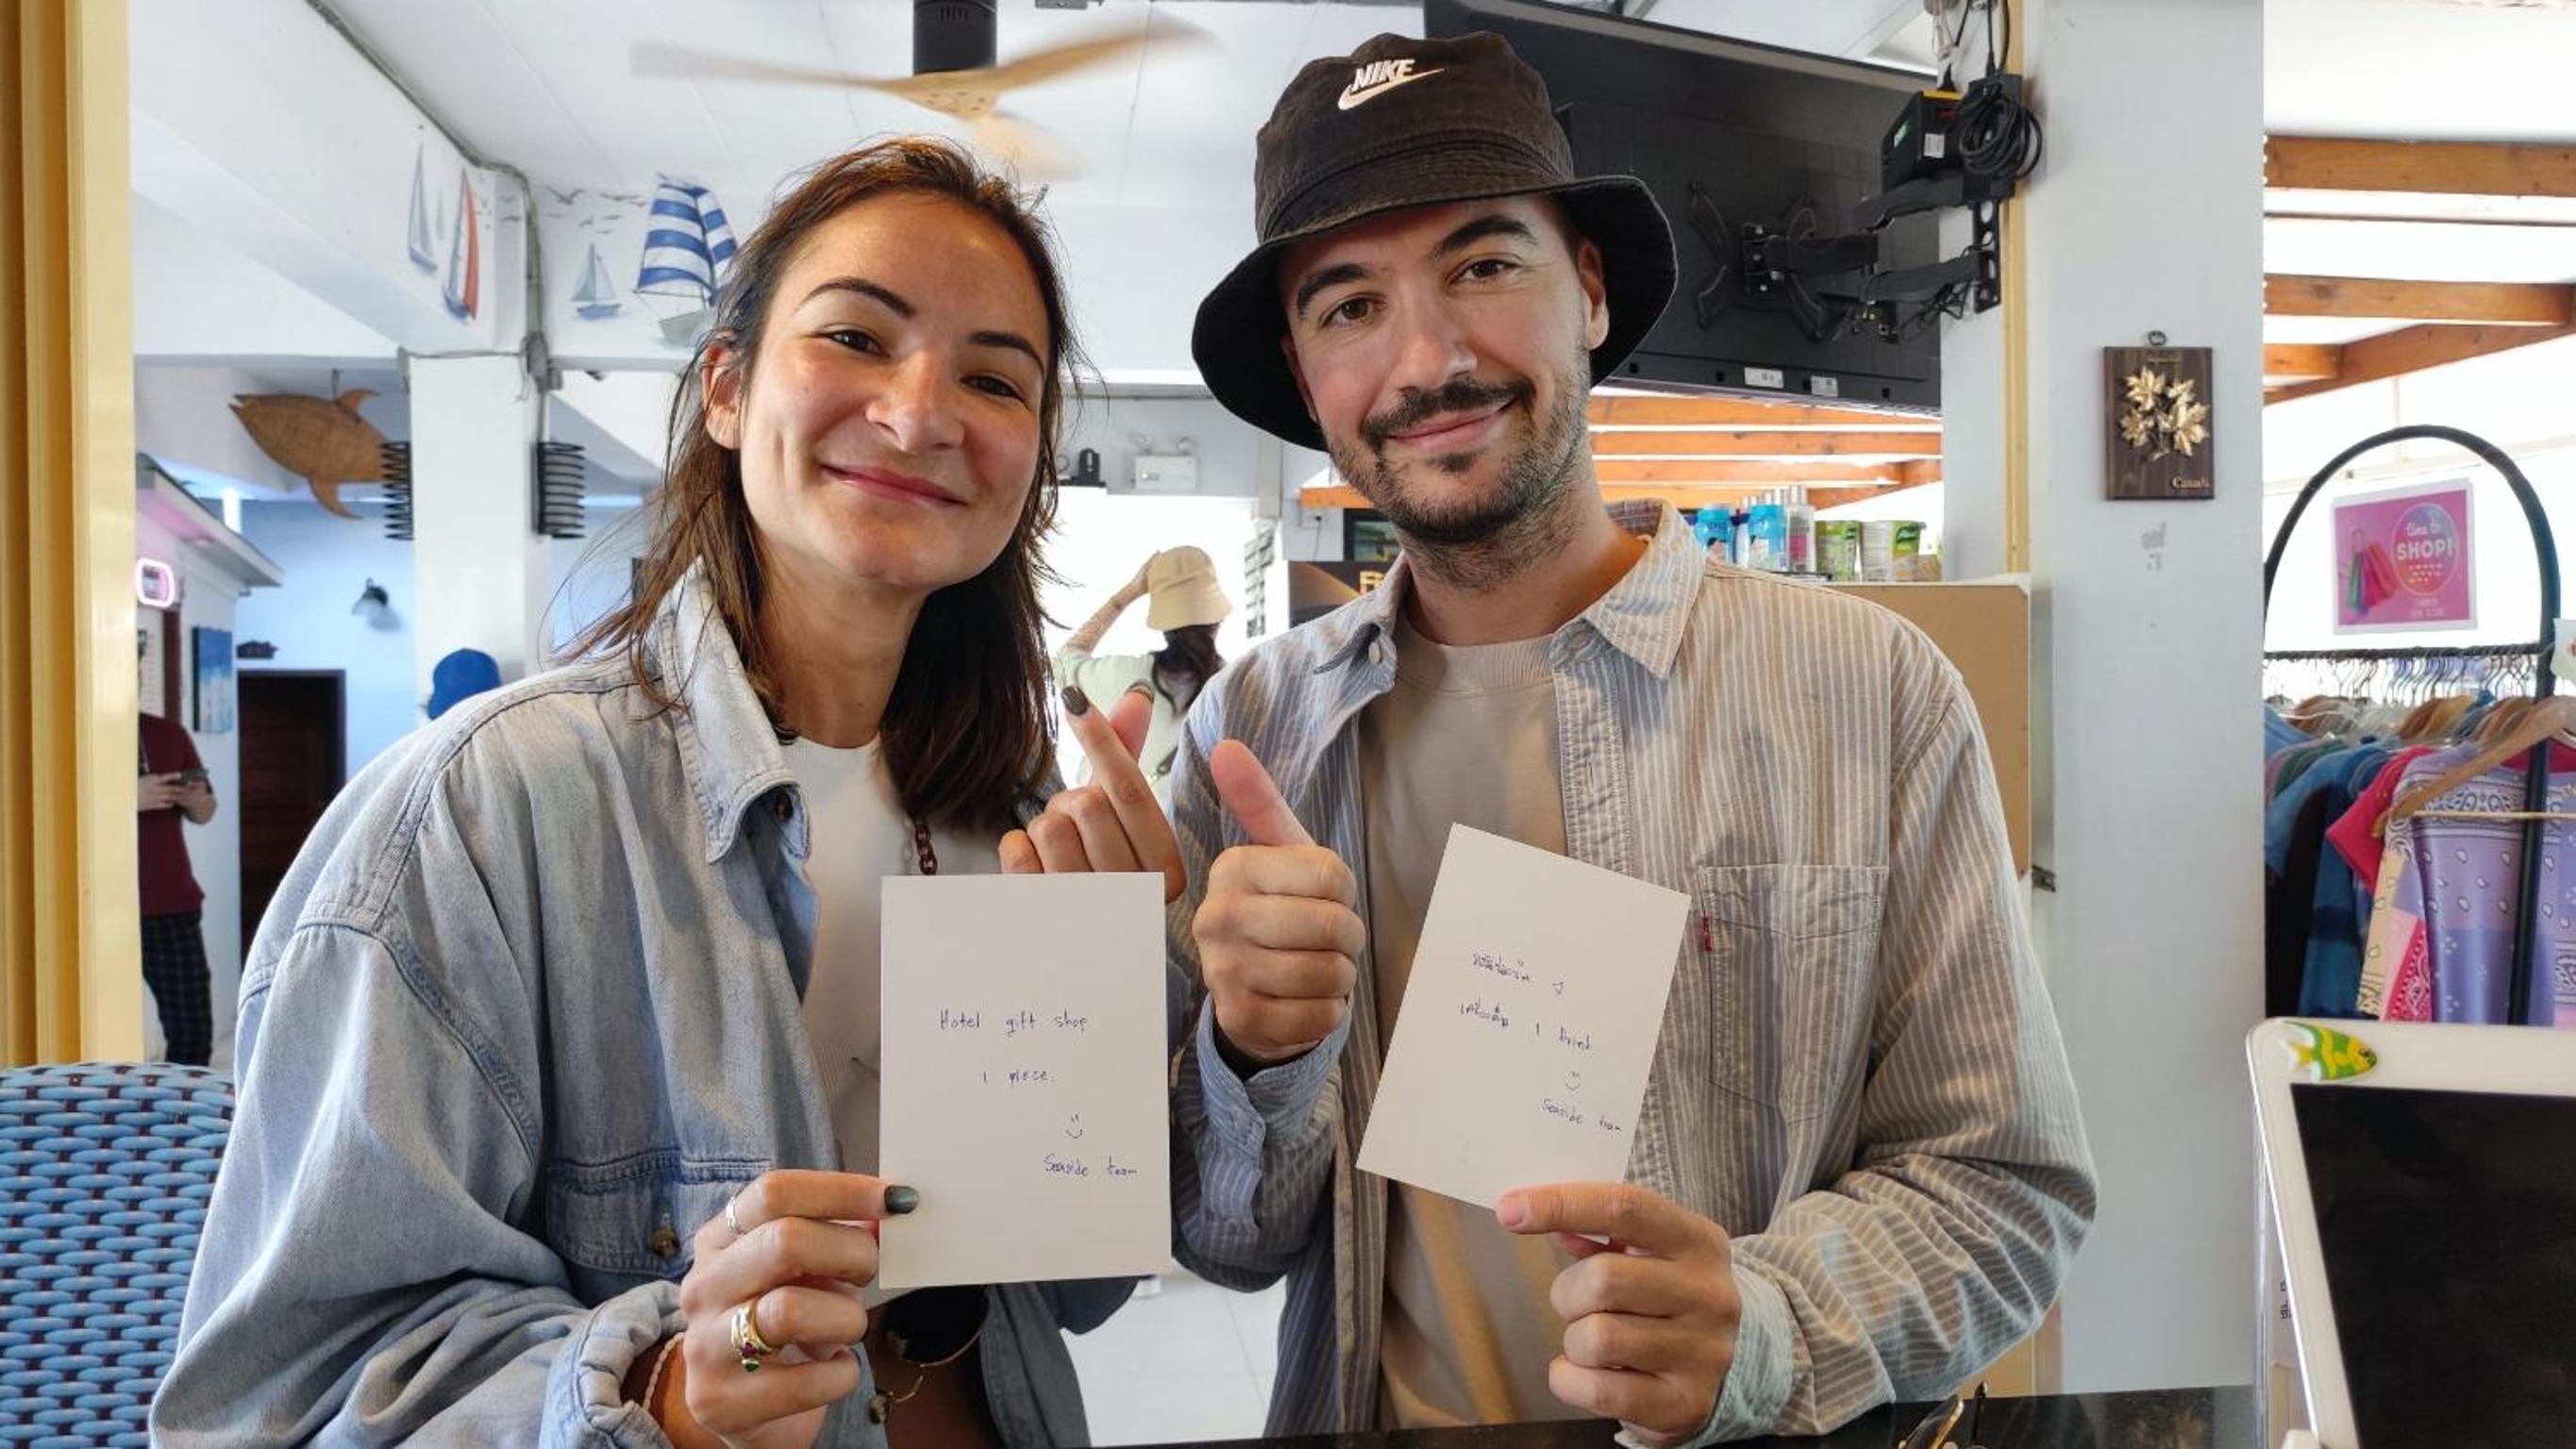 NIKE
Canada
time to
SHOP!
Hotel gift shop
1 piece.
Seaside team
1 Drink
Seaside team